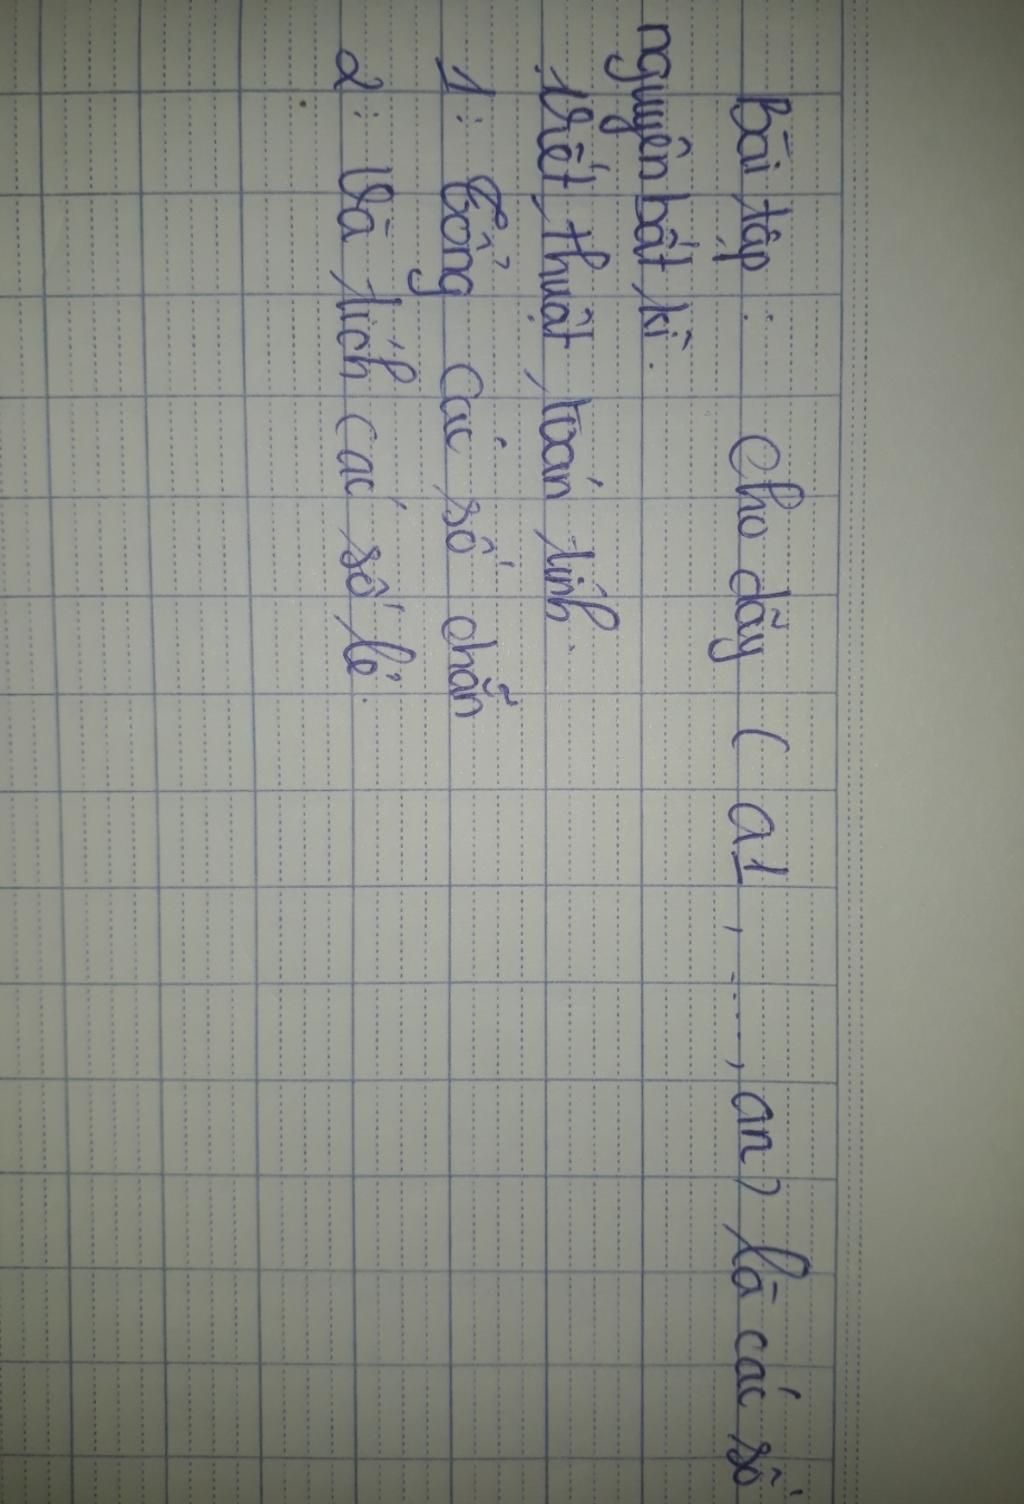 Bài tập : Cho dãy ( a1, ...., an) là các số
nguyên bất kì.
Viết thuật toán tính.
1 : Tổng các số chẵn
2 : Và tích các số lẻ.